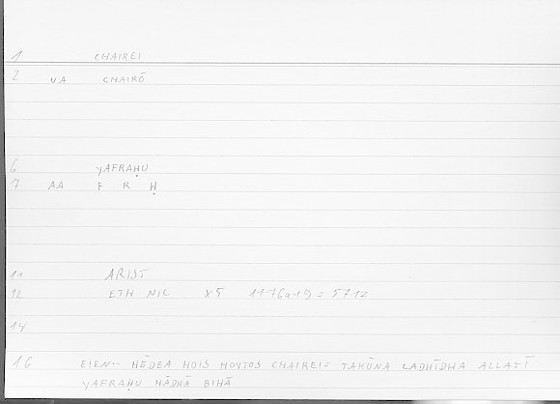 1 CHAIREI
2 VA CHAIRŌ
6 YAFRAḤU
7 AA F R Ḥ
11 ARIST
12 ETH NIC 85 1176a19 = 571Z
14
16 EIEN·· HĒDEA HOIS HOYTOS CHAIREI = TAKŪNA LADHĪDHA ALLATĪ
YAFRAḤU HĀDHĀ BIHĀ